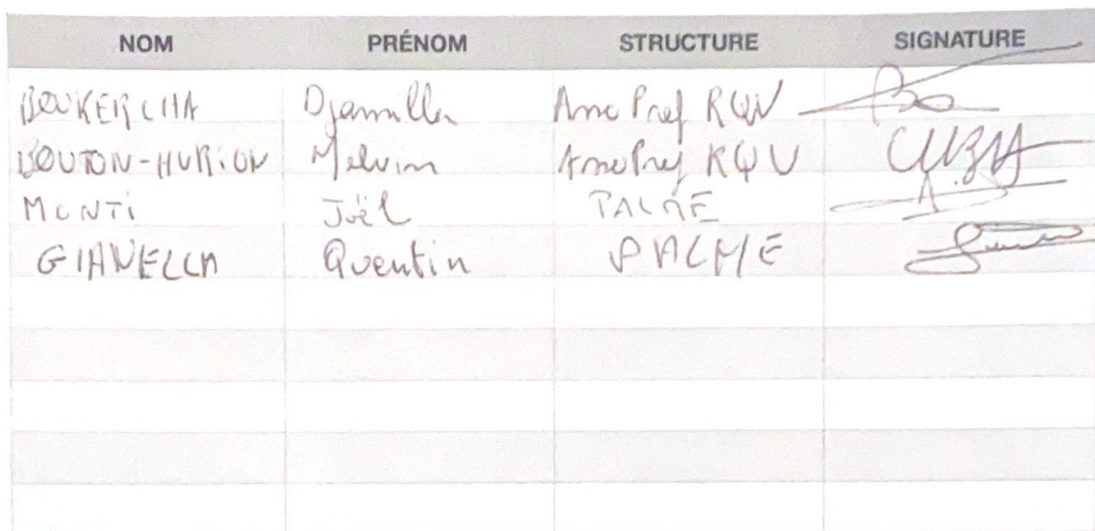 NOM PRÉNOM STRUCTURE SIGNATURE
BOUKERCHA Djamilla Ame Pref RQV
BOUTON-HURION Melvin Ame Pref RQV
MONTI Joël PALME
GIANELLA Quentin PALME